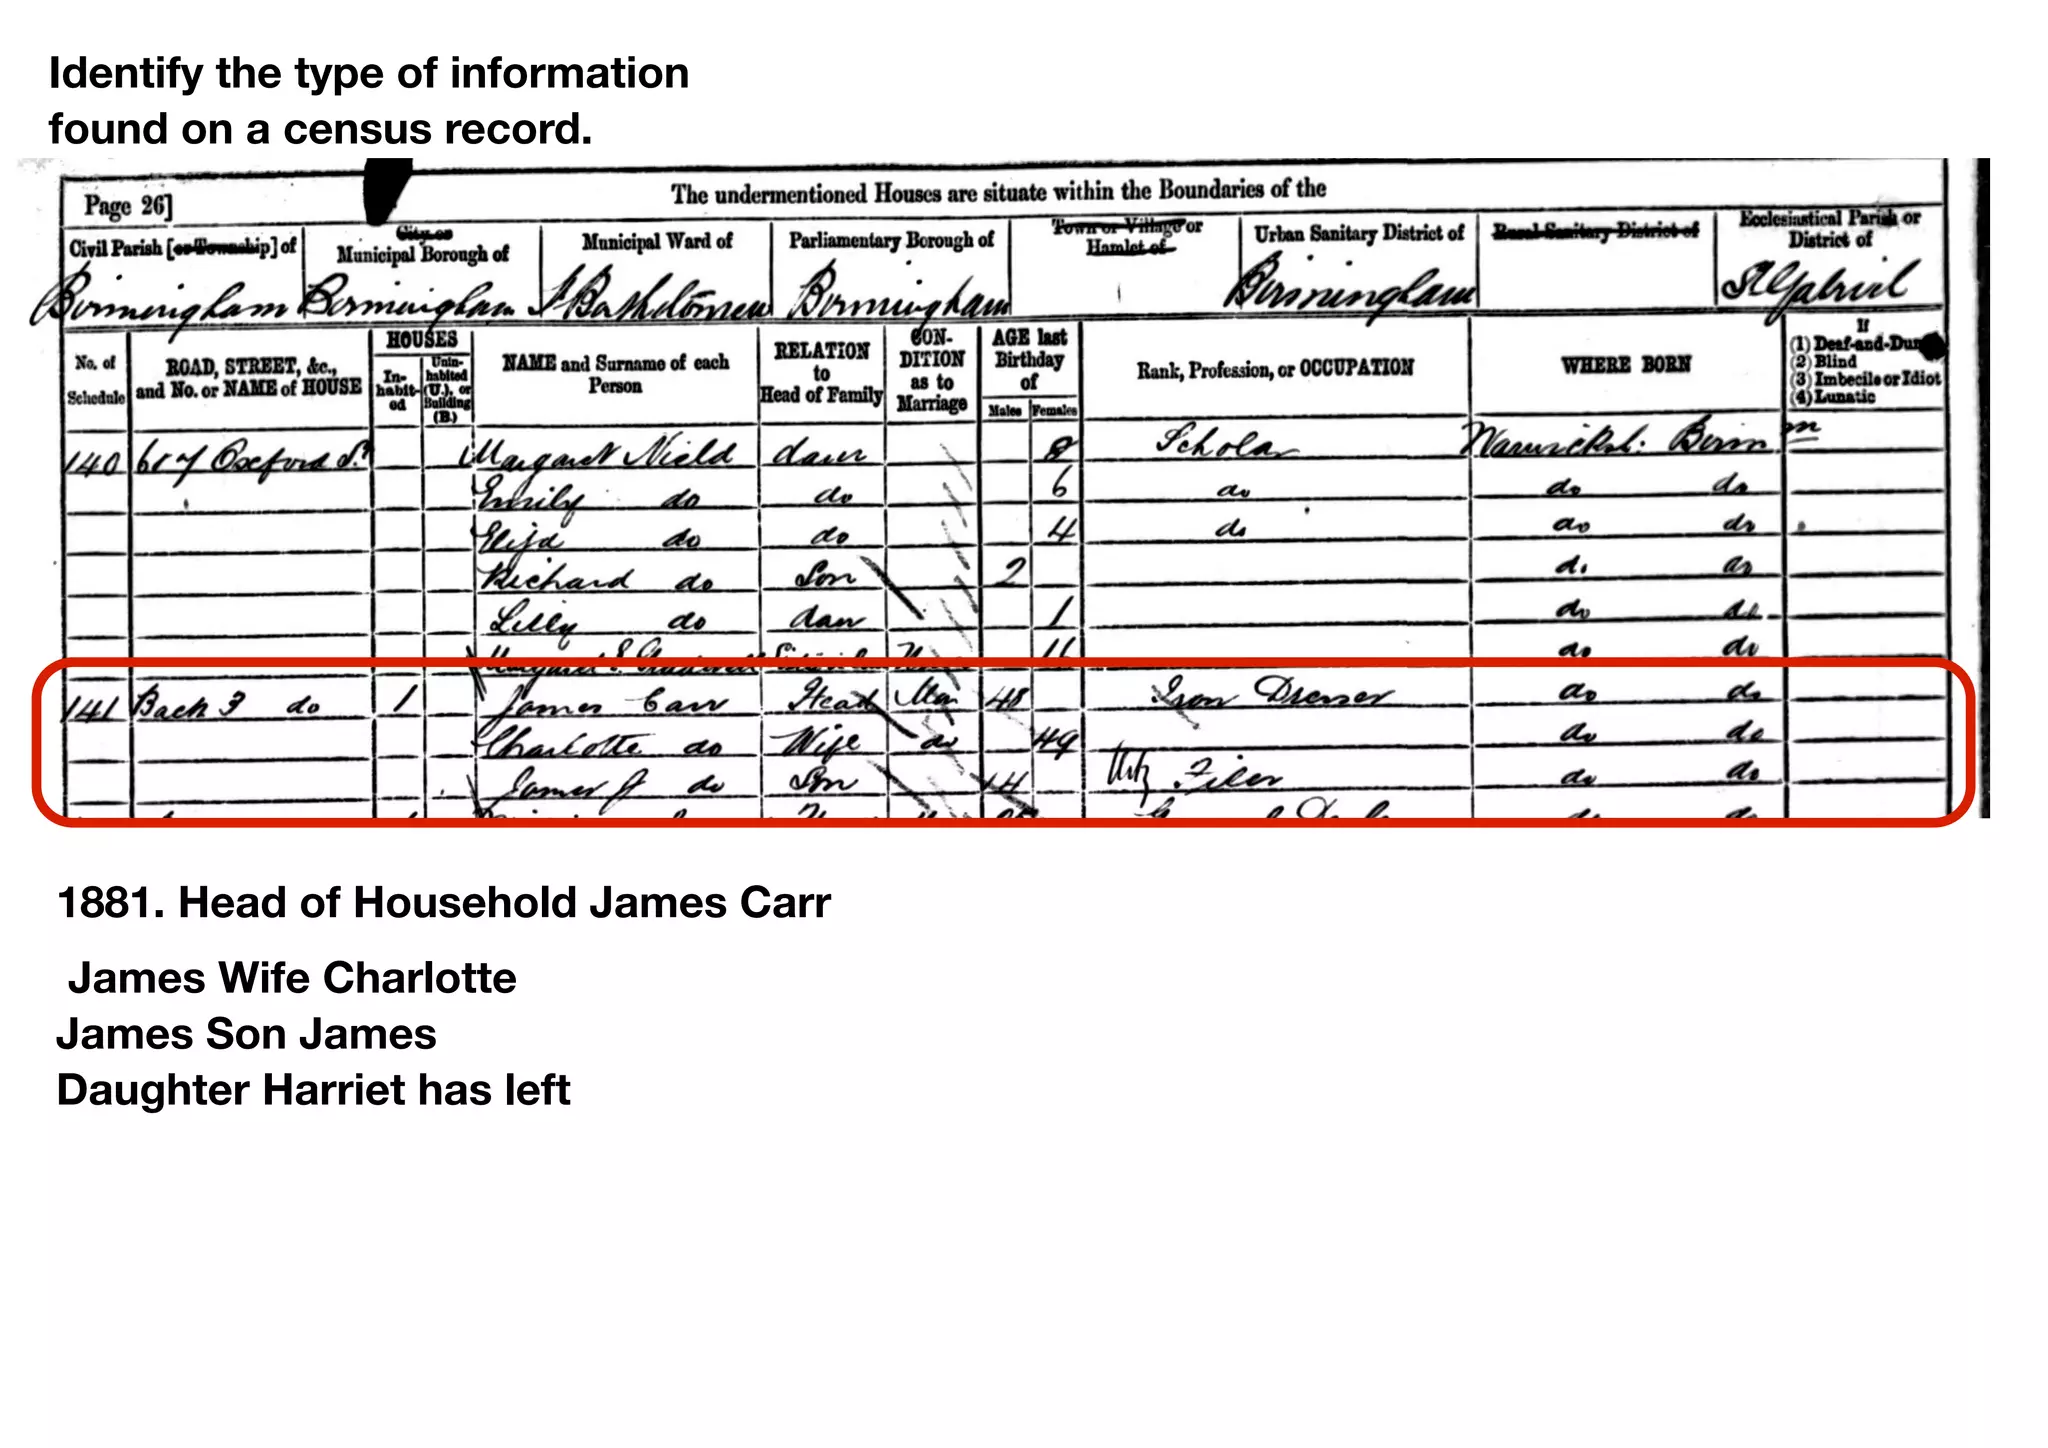 Identify the type of information
found on a census record.
Page 26]
The undermentioned Houses are situate within the Boundaries of the
Civil Parish [or Township] of
City or
Municipal Borough of
Municipal Ward of
Parliamentary Borough of
Town or Village or
Hamlet of
Urban Sanitary District of
Rural Sanitary District of
Ecclesiastical Parish or
District of
Birmingham Birmingham St Bartholomew Birmingham Birmingham St Gabriel
No. of
Schedule
ROAD, STREET, &c.,
and No. or NAME of HOUSE
HOUSES
In-
habit-
ed
Unin-
habited
(U.), or
Building
(B.)
NAME and Surname of each
Person
RELATION
to
Head of Family
CON-
DITION
as to
Marriage
AGE last
Birthday
of
Males Females
Rank, Profession, or OCCUPATION
WHERE BORN
If
(1) Deaf-and-Dumb
(2) Blind
(3) Imbecile or Idiot
(4) Lunatic
140 Oxford St Margaret Nield daur 8 Scholar Warwicksh: Birmm
Emily do do 6 do do do
Eliza do do 4 do do do
Richard do Son 2 do do
Lilly do daur 1 do do
Margaret E. do do
141 Back 3 do 1 James Carr Head Mar 48 Iron Dresser do do
Charlotte do Wife do 49 do do
James J do Son 14 Filer do do
1881. Head of Household James Carr
James Wife Charlotte
James Son James
Daughter Harriet has left